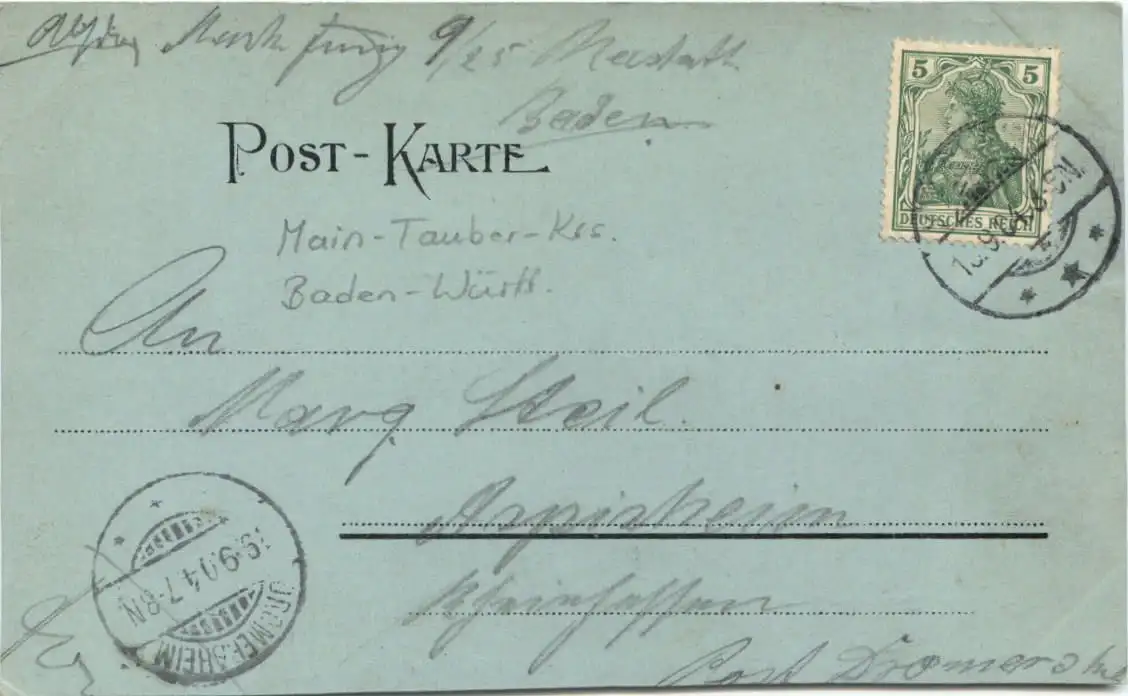 9/25 Rastatt
Baden
5 5
DEUTSCHES REICH
POST-KARTE
Main-Tauber-Krs.
Baden-Württ.
An
Marg Steil.
Aspisheim
Rheinhessen
Post Dromersheim
19.9.04.7-8N.
DROMERSHEIM